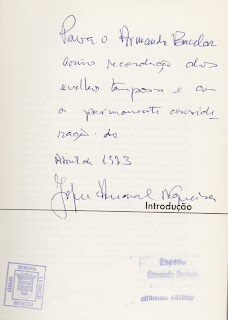 Para o Armando Bacelar
como recordação dos
velhos tempos e com
a permanente conside-
ração do
Abril de 1973
Introdução
MUNICIPAL
Espólio
Armando Bacelar